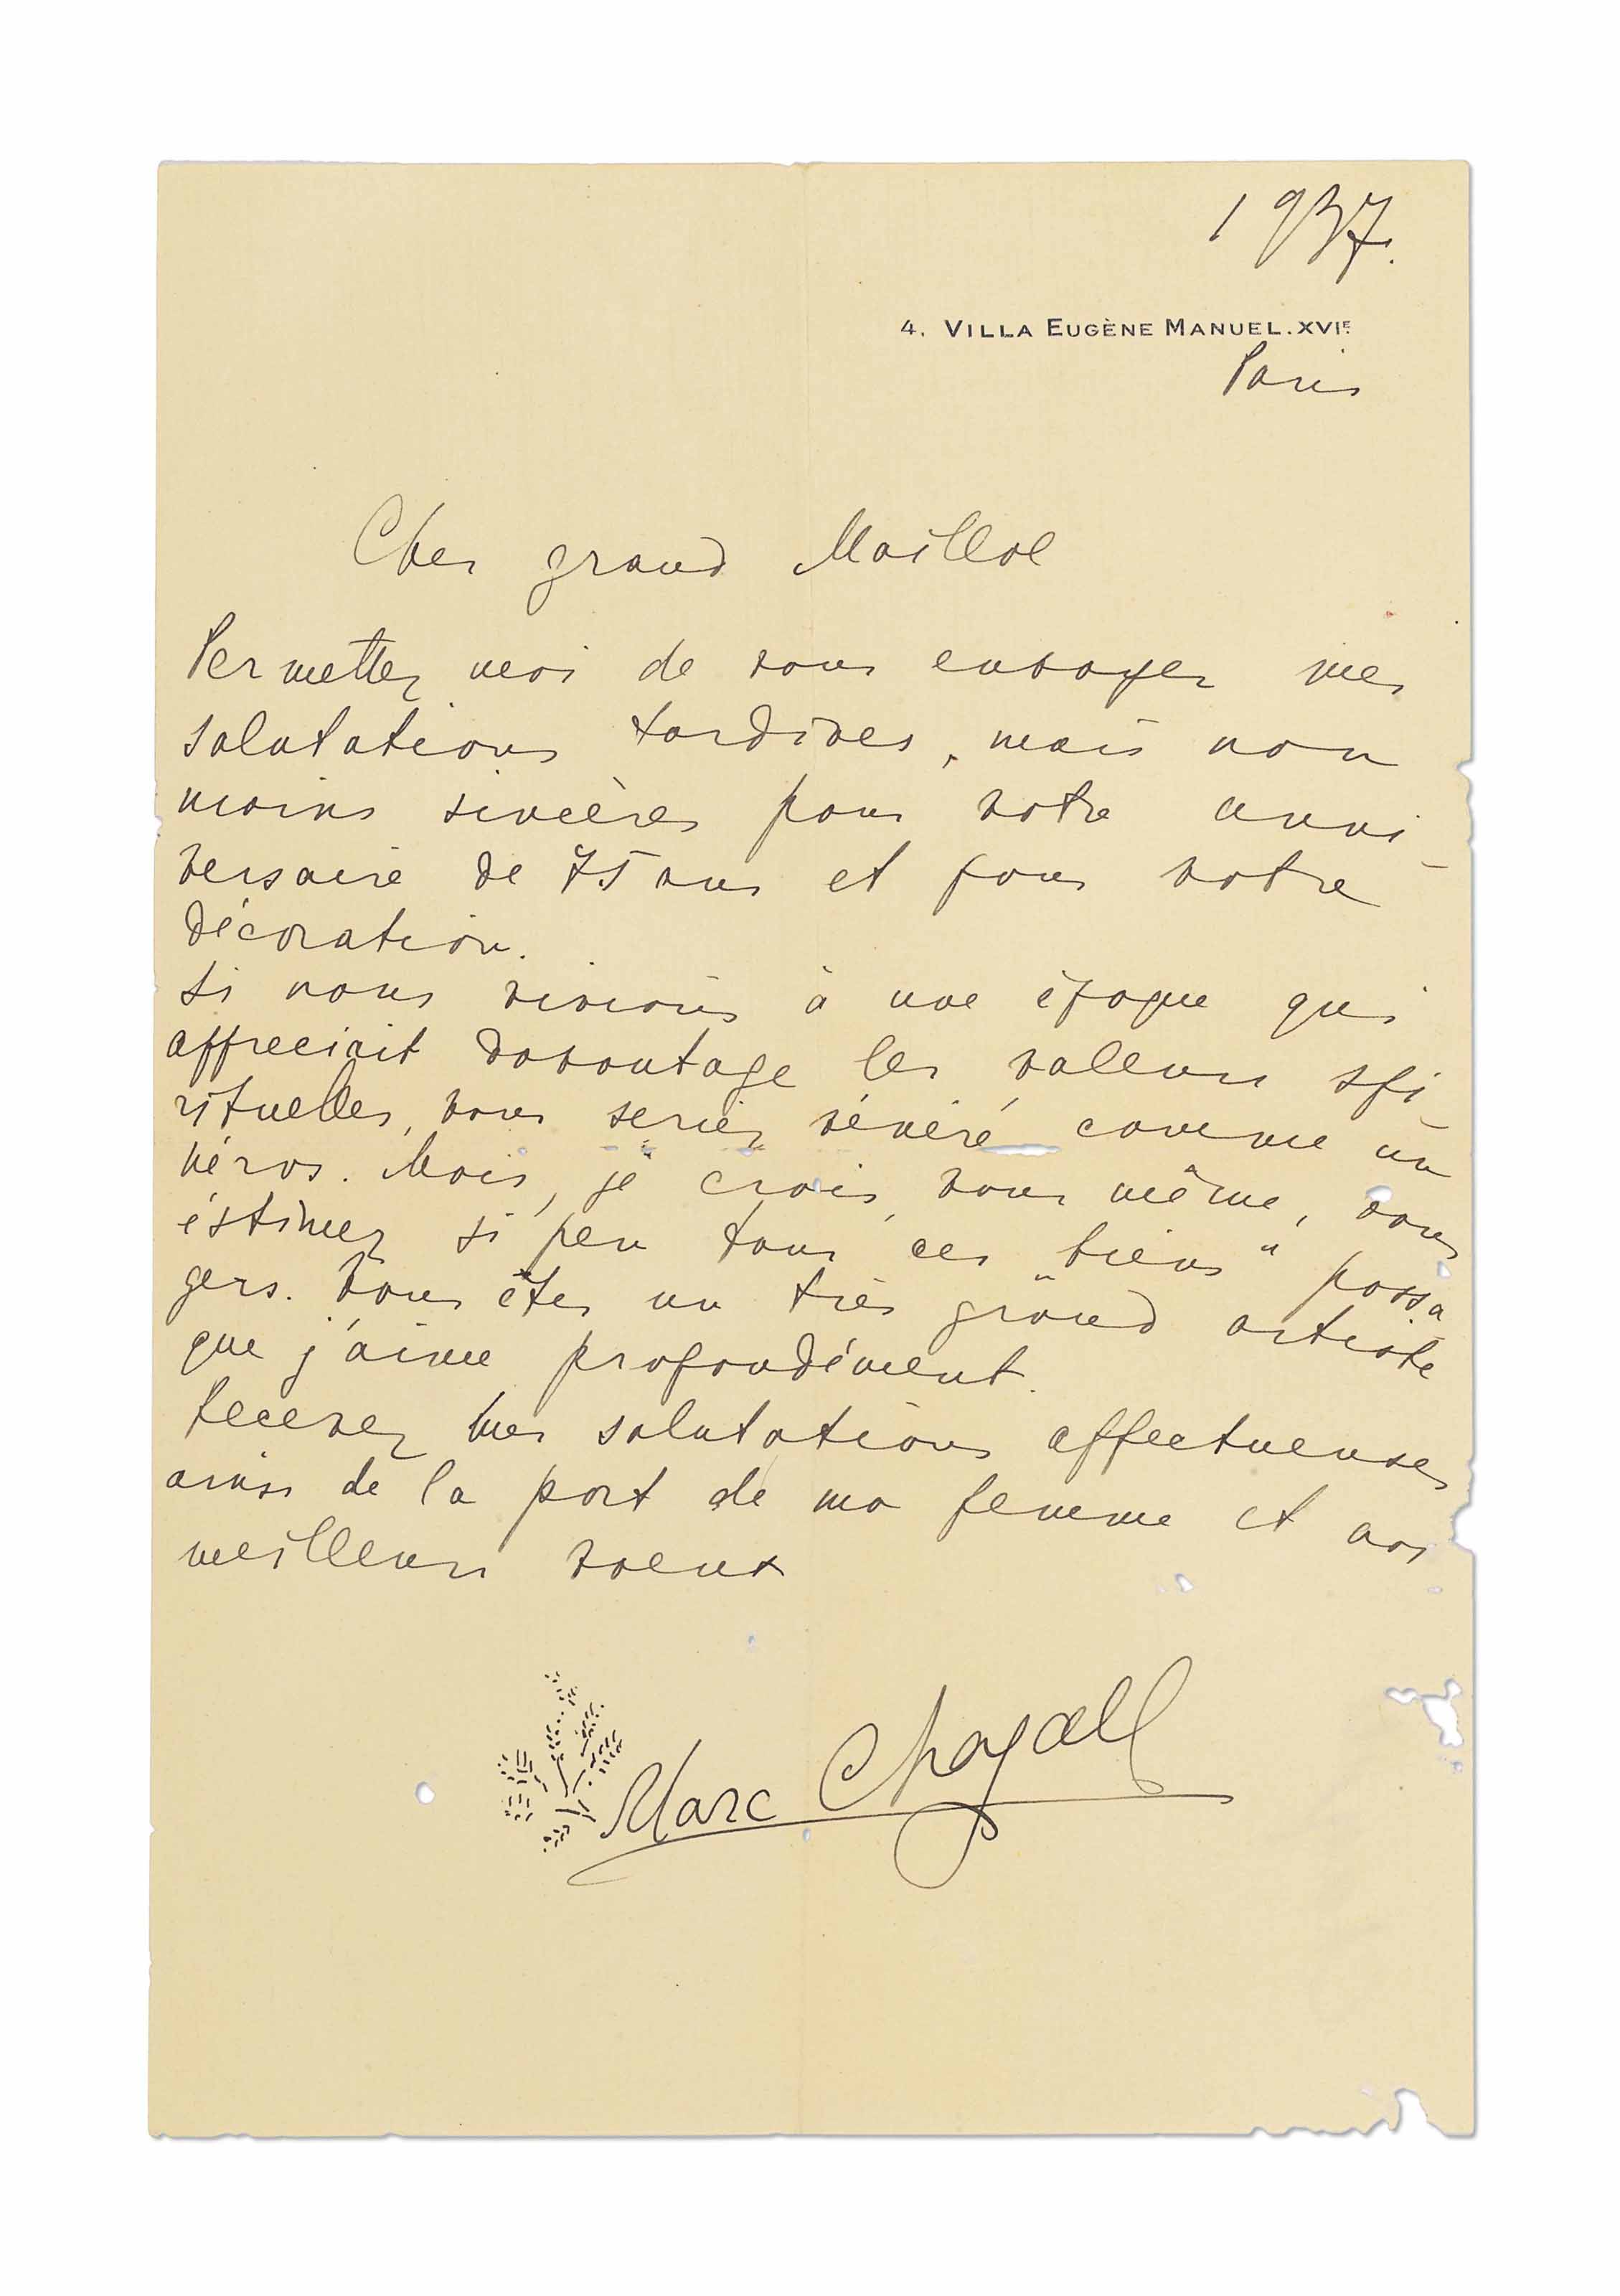 1937.
4. VILLA EUGÈNE MANUEL.XVIE
Paris
Cher grand Maillol
Permettez moi de vous envoyer mes
salutations tardives, mais non
moins sincères pour votre anni-
versaire de 75 ans et pour votre
décoration.
Si nous vivions à une époque qui
appreciait davantage les valeurs spi-
rituelles, vous seriez vénéré comme un
héros. Mais, je crois, vous même, vous
éstimez si peu tous ces "biens" passa
gers. Vous êtes un très grand artiste
que j'aime profondément.
Recevez mes salutations affectueuses
ainsi de la part de ma femme et nos
meilleurs voeux
Marc Chagall